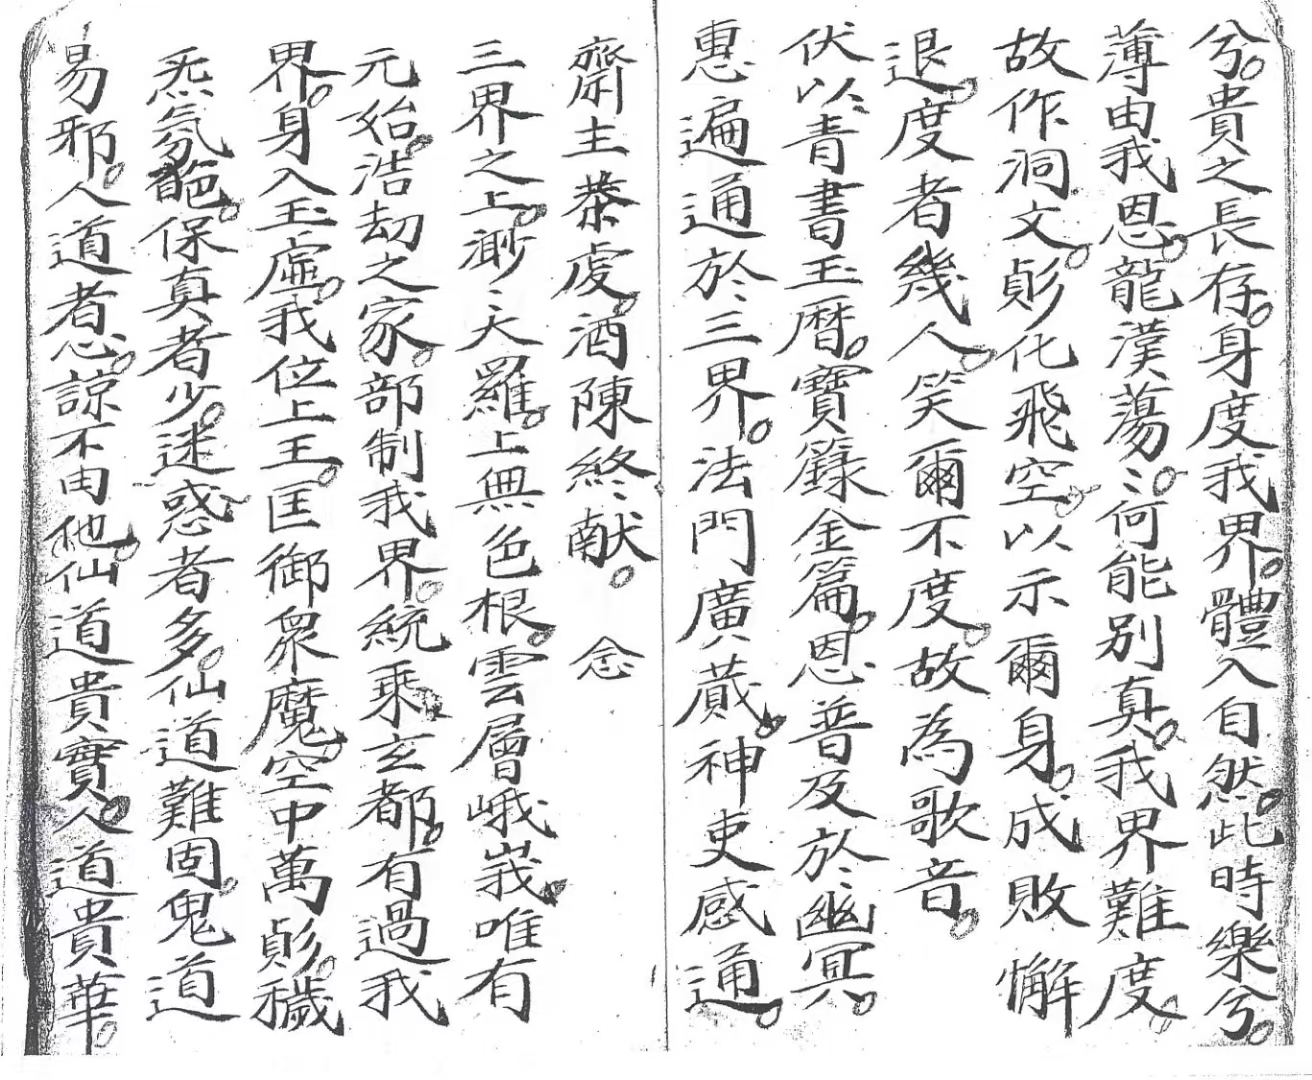 兮貴之長存身度我界體入自然此時樂兮
薄由我恩龍漢蕩〻何能别真我界難度
故作洞文飛化飛空以示爾身成敗懈
退度者幾人笑爾不度故為歌音
伏以青書玉曆寶籙金篇恩普及於幽冥
惠遍通於三界法門廣蕆神吏感通
齋主恭虔酒陳終献 念
三界之上渺〻天羅上無色根雲層峨峩唯有
元始浩刼之家部制我界統乘玄都有過我
界身入玉虛我位上王匡御衆魔空中萬穢
炁氛葩保真者少迷惑者多仙道難固鬼道
易邪人道者心諒不由他仙道貴實人道貴華